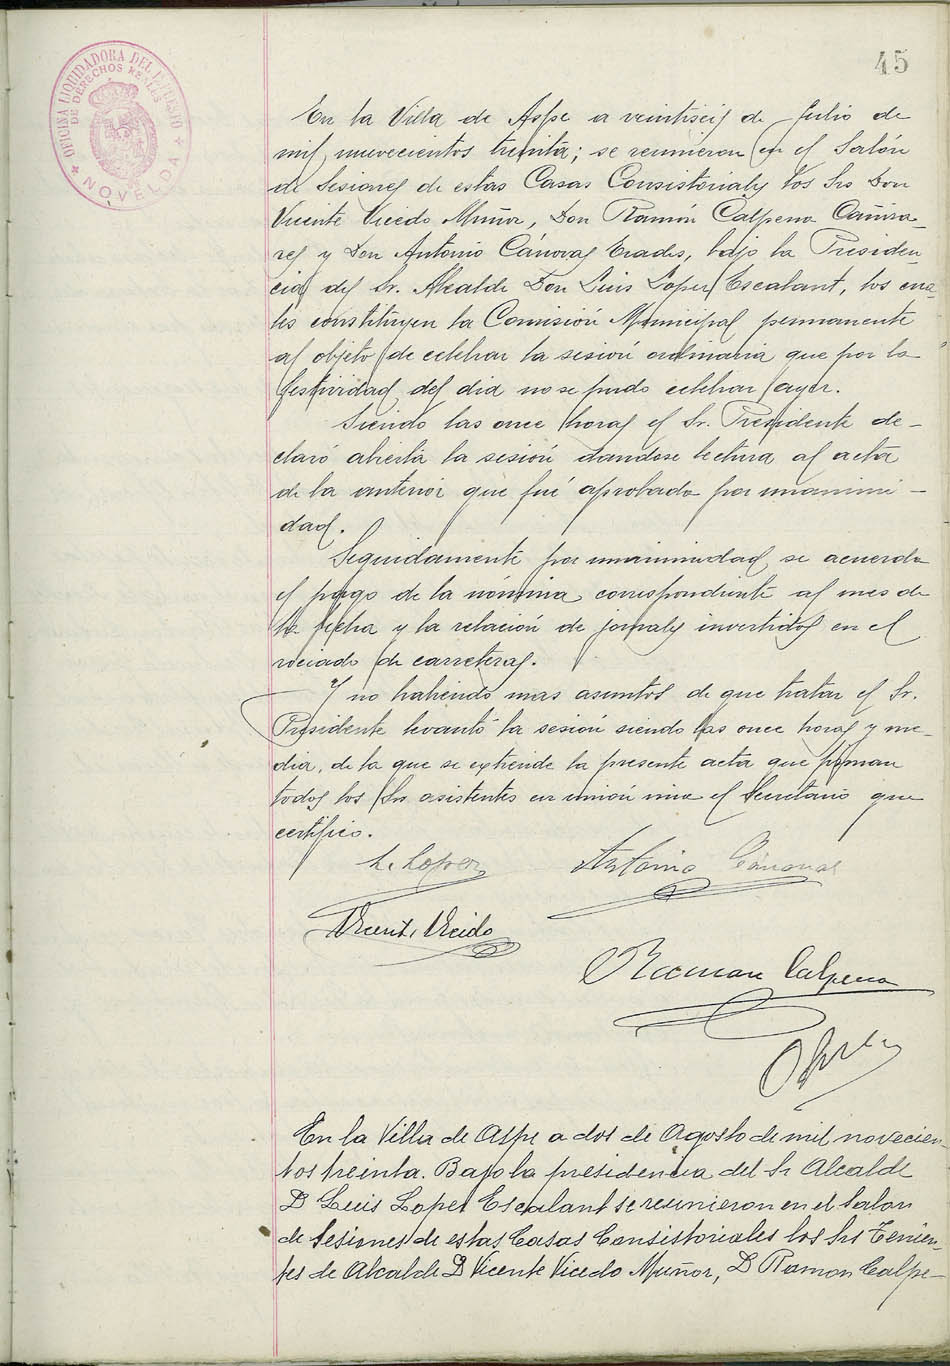 45
OFICINA LIQUIDADORA DEL IMPUESTO
DE DERECHOS REALES
NOVELDA
En la Villa de Aspe a veintiseis de Julio de
mil nuevecientos treinta; se reunieron en el Salón
de Sesiones de estas Casas Consistoriales los Srs Don
Vicente Vicedo Muñoz, Don Ramón Calpena Cañiza-
res y Don Antonio Cánovas Erades, bajo la Presiden-
cia del Sr. Alcalde Don Luis Lopez Escalant, los cua-
les constituyen la Comisión Municipal permanente
al objeto de celebrar la sesión ordinaria que por la
festividad del dia no se pudo celebrar ayer.
Siendo las once horas el Sr. Presidente de-
claró abierta la sesión dandose lectura al acta
de la anterior que fué aprobada por unanimi-
dad.
Seguidamente por unanimidad se acuerda
el pago de la nómina correspondiente al mes de
la fecha y la relación de jornales invertidos en el
rociado de carreteras.
Y no habiendo mas asuntos de que tratar el Sr.
Presidente levantó la sesión siendo las once horas y me-
dia, de la que se extiende la presente acta que firman
todos los Srs asistentes en unión mia el Secretario que
certifico.
L. Lopez
Antonio Cánovas
Vicente Vicedo
Ramon Calpena
En la Villa de Aspe a dos de Agosto de mil novecien-
tos treinta. Bajo la presidencia del Sr Alcalde
D Luis Lopez Escalant se reunieron en el Salon
de Sesiones de estas Casas Consistoriales los Srs Tenien-
tes de Alcalde D Vicente Vicedo Muñoz, D Ramon Calpe-